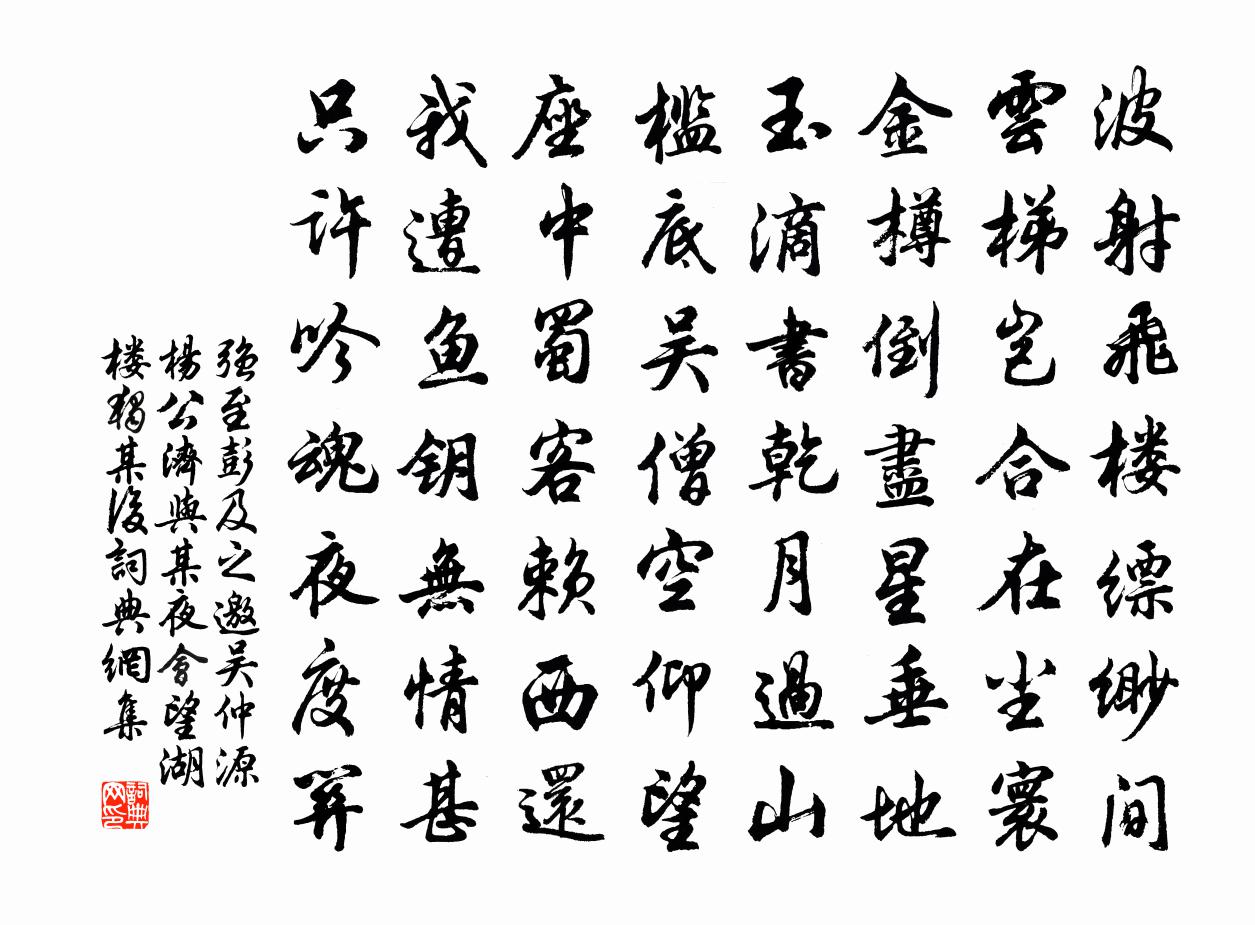 波射飛楼縹緲間
雲梯岂合在尘寰
金樽倒盡星垂地
玉滴書乾月過山
檻底吴僧空仰望
座中蜀客赖西還
我遭鱼钥無情甚
只许吟魂夜度関
强至彭及之邀吴仲源
楊公濟與某夜會望湖
楼獨某後詞典網集
詞典
网印